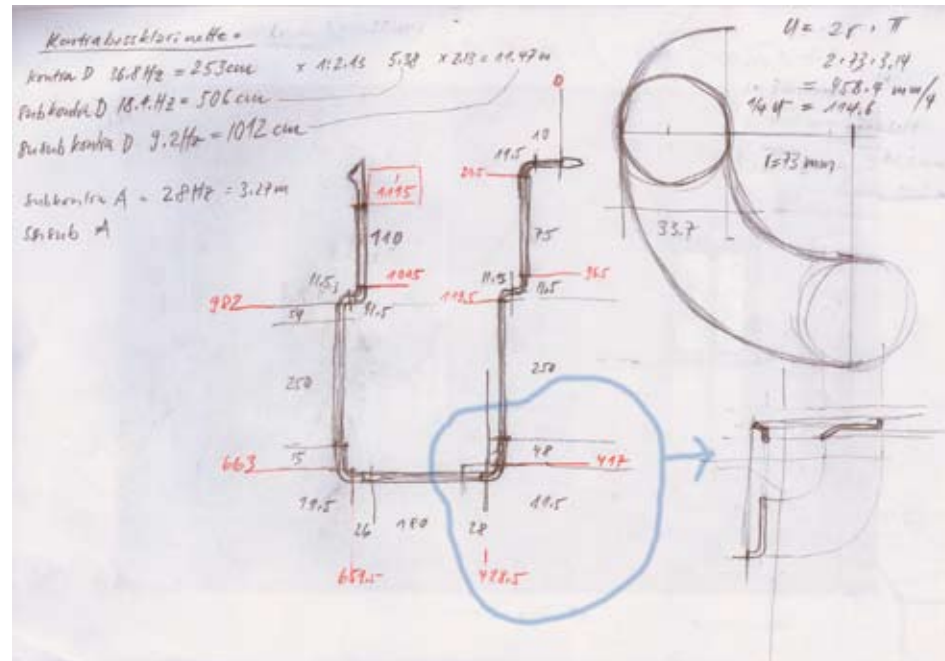 Kontrabassklarinette.
Kontra D 36.8Hz = 253cm x 1:2.13 5.38 x 2.13 = 11.47m
Subkontra D 18.4Hz = 506cm
Susub kontra D 9.2Hz = 1012 cm
Subkontra A = 28Hz = 3.27m
A
U = 2r · π
2·73·3,14
= 458.4 mm/4
1/4 U = 114.6
r=73mm
33.7
0
10
11.5
1115
110
75
11.5
1015
11.5
96.5
982
11.5
119.5
11.5
59
250
250
663
15
48
417
11.5
26
180
28
11.5
659.5
428.5